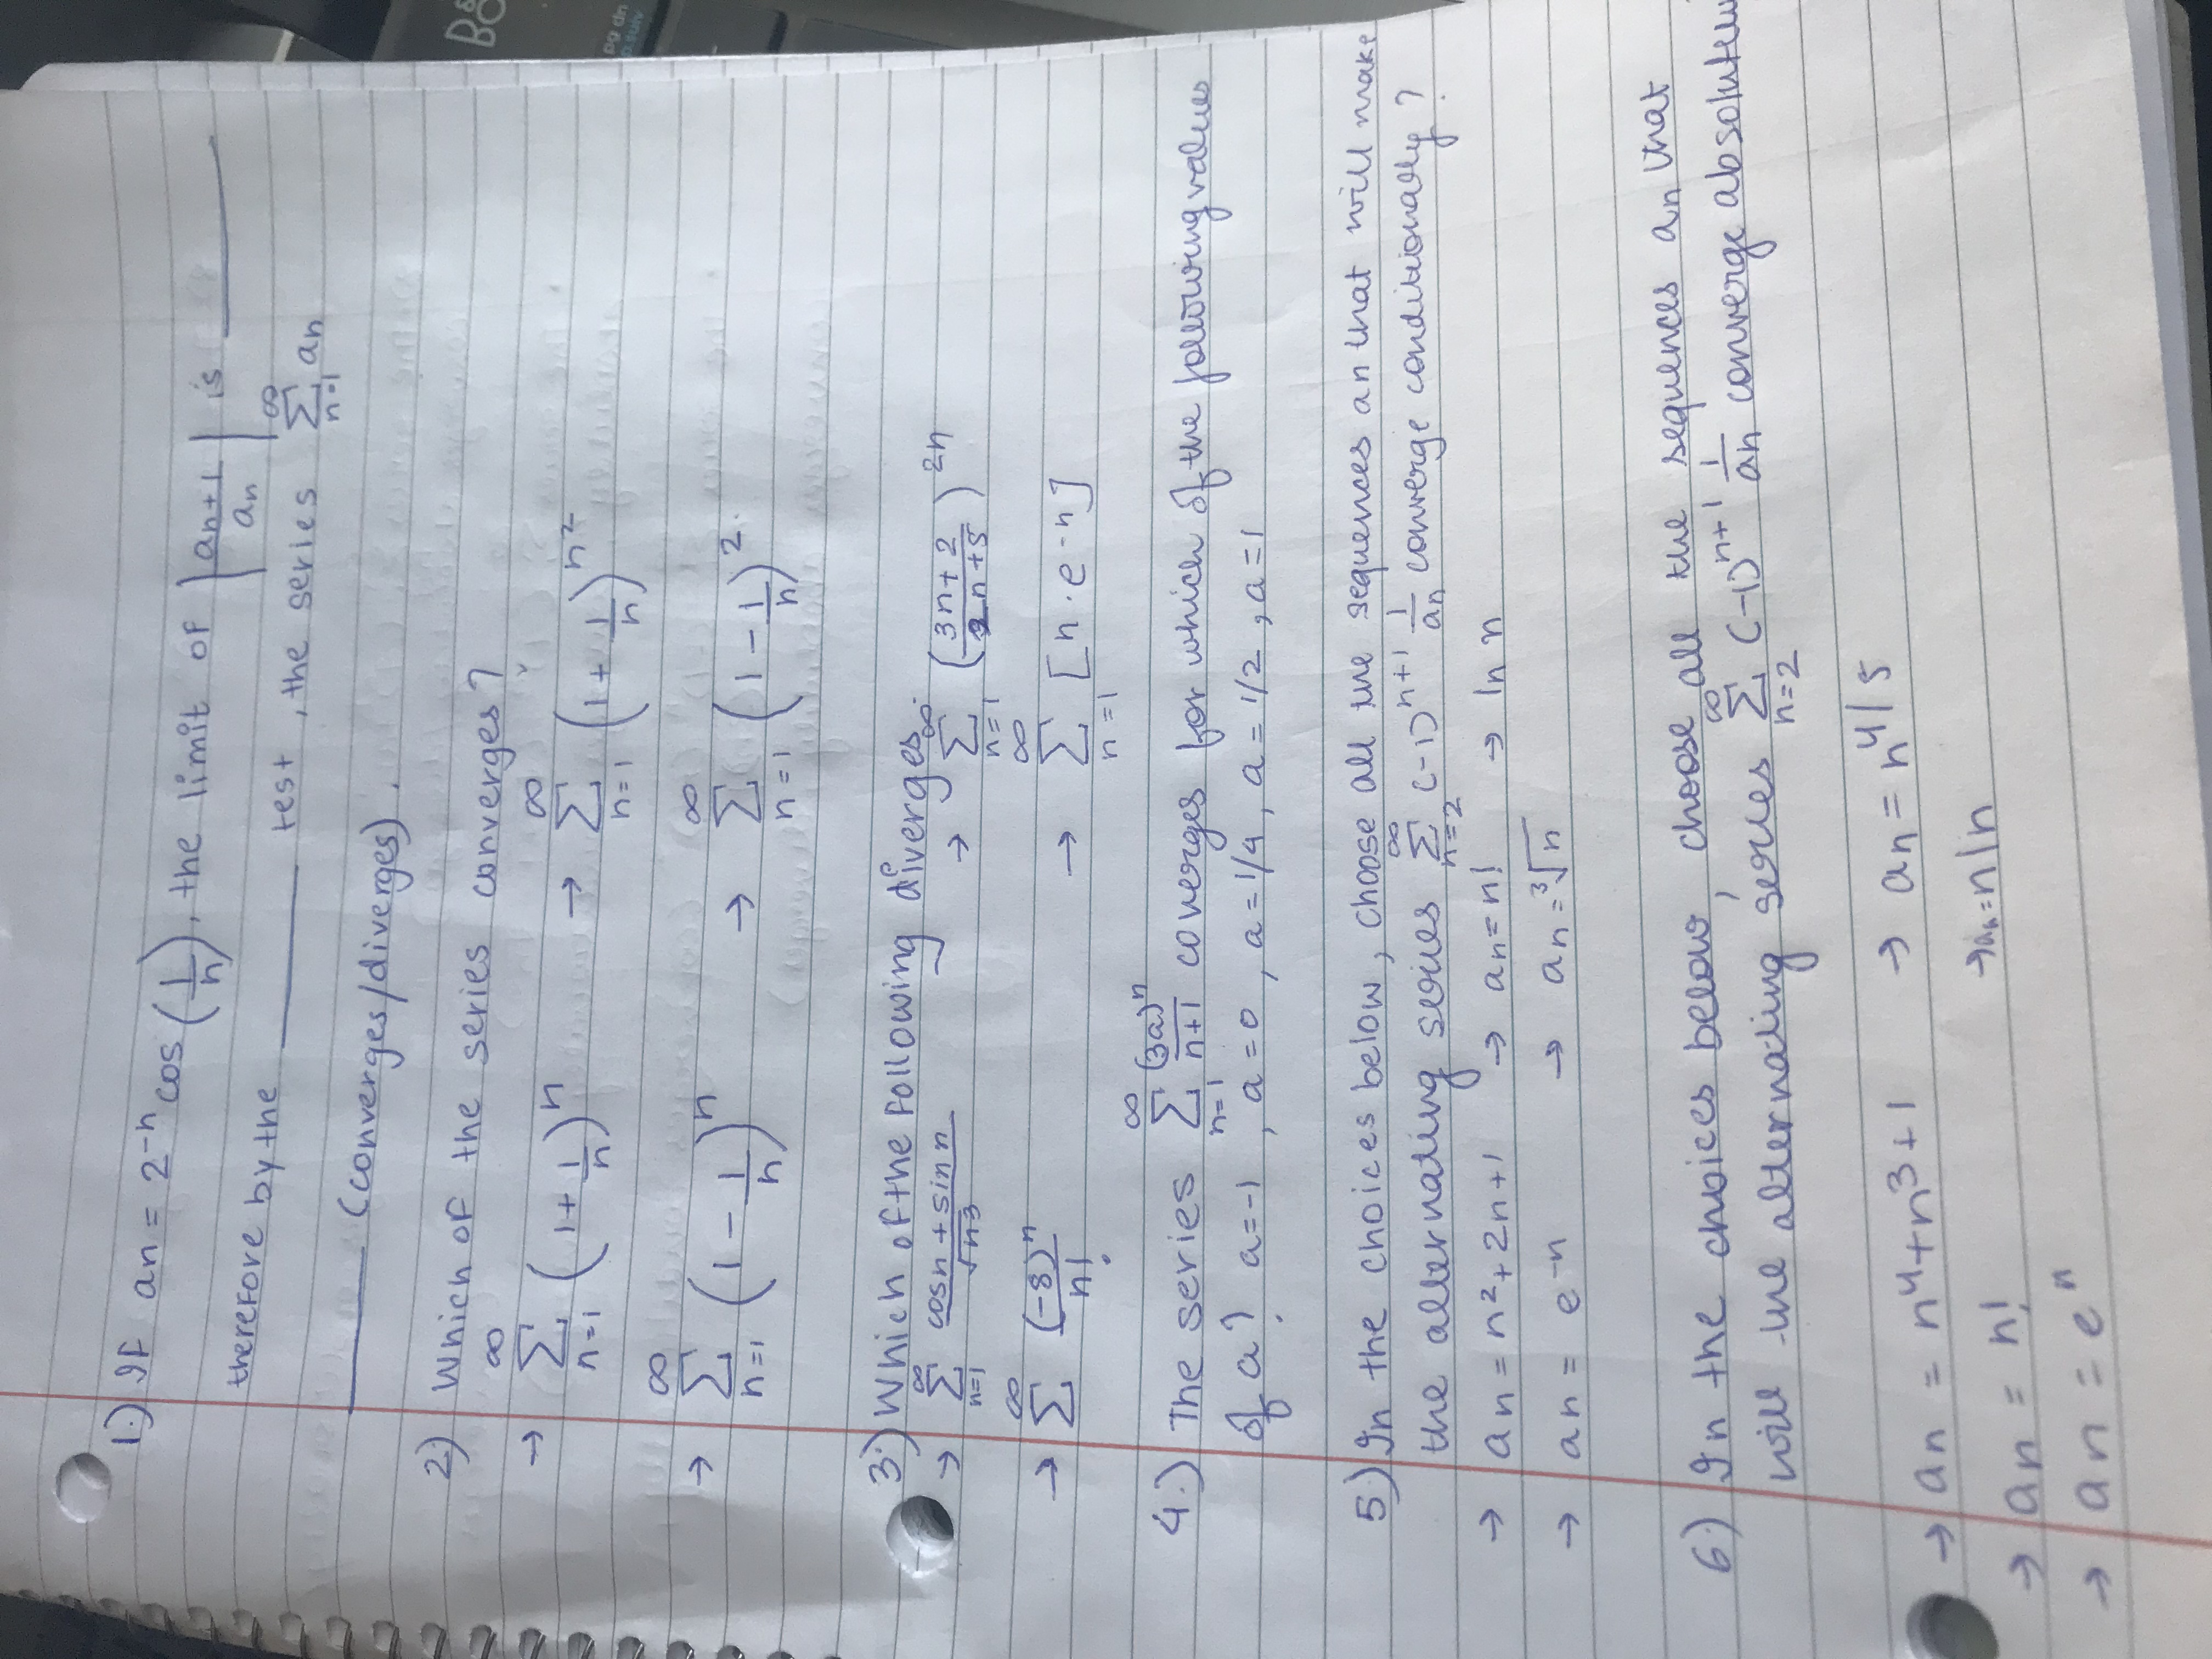 1.) If an = 2^-n cos(1/n), the limit of |an+1/an| is ____
therefore by the ____ test, the series ∞Σn=1 an
____ (converges/diverges).
2.) Which of the series converges?
→ ∞Σn=1 (1+1/n)^n → ∞Σn=1 (1+1/n)^n^2
→ ∞Σn=1 (1-1/n)^n → ∞Σn=1 (1-1/n)^2
3.) Which of the following diverges
→ ∞Σn=1 cosn+sinn/√n^3 → ∞Σn=1 (3n+2/2n+5)^2n
→ ∞Σ (-8)^n/n! → ∞Σn=1 [n·e^-n]
4.) The series ∞Σn=1 (3a)^n/n+1 converges for which of the following values
of a? a=-1, a=0, a=1/4, a=1/2, a=1
5.) In the choices below, choose all the sequences an that will make
the alternating series ∞Σn=2 (-1)^n+1 1/an converge conditionally?
→ an = n^2+2n+1 → an=n! → ln n
→ an = e^-n → an=³√n
6.) In the choices below, choose all the sequences an that
will the alternating series ∞Σn=2 (-1)^n+1 1/an converge absolutely
→ an = n^4+n^3+1 → an = n^4/5
→ an = n! → an=n ln
→ an = e^n
B&
BO
pg dn
p.suiv